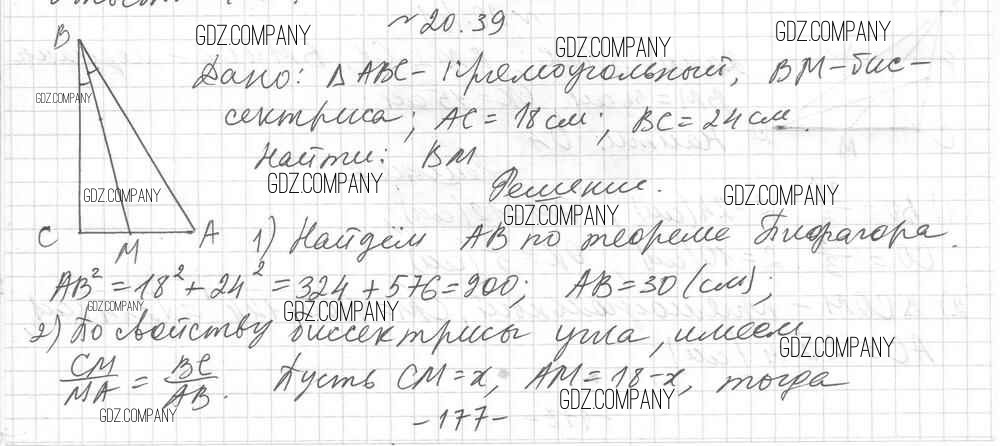 № 20.39
B
Дано: △ ABC - прямоугольный, BM - бис-
сектриса; AC = 18 см; BC = 24 см.
Найти: BM
Решение.
C M A
1) Найдём AB по теореме Пифагора.
AB² = 18² + 24² = 324 + 576 = 900; AB = 30 (см);
2) По свойству биссектрисы угла, имеем
CM/MA = BC/AB. Пусть CM = x, AM = 18 - x, тогда
- 177 -
GDZ.COMPANY
GDZ.COMPANY
GDZ.COMPANY
GDZ.COMPANY
GDZ.COMPANY
GDZ.COMPANY
GDZ.COMPANY
GDZ.COMPANY
GDZ.COMPANY
GDZ.COMPANY
GDZ.COMPANY
GDZ.COMPANY
GDZ.COMPANY